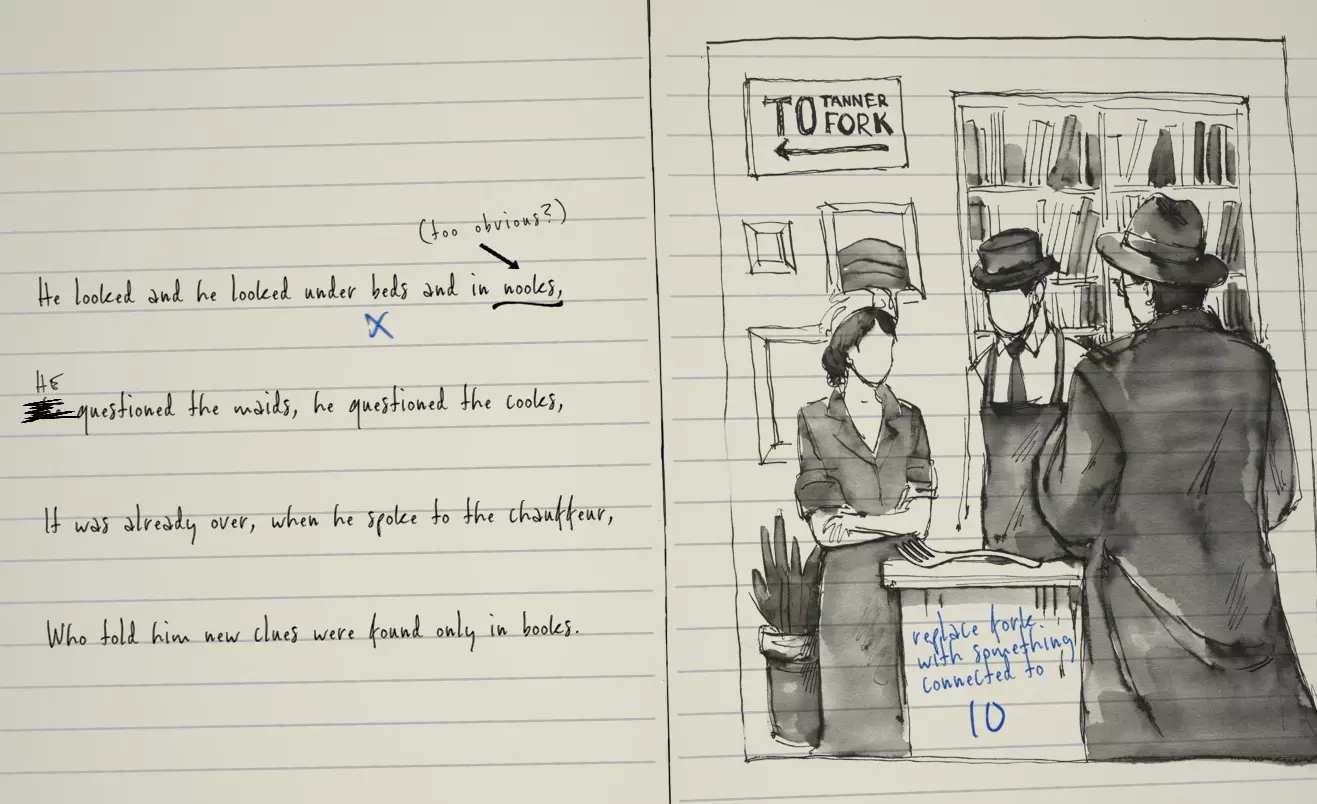 (too obvious?)
He looked and he looked under beds and in nooks,
X
HE
questioned the maids, he questioned the cooks,
It was already over, when he spoke to the chauffeur,
Who told him new clues were found only in books.
TO TANNER
FORK
replace fork.
with something
connected to
10